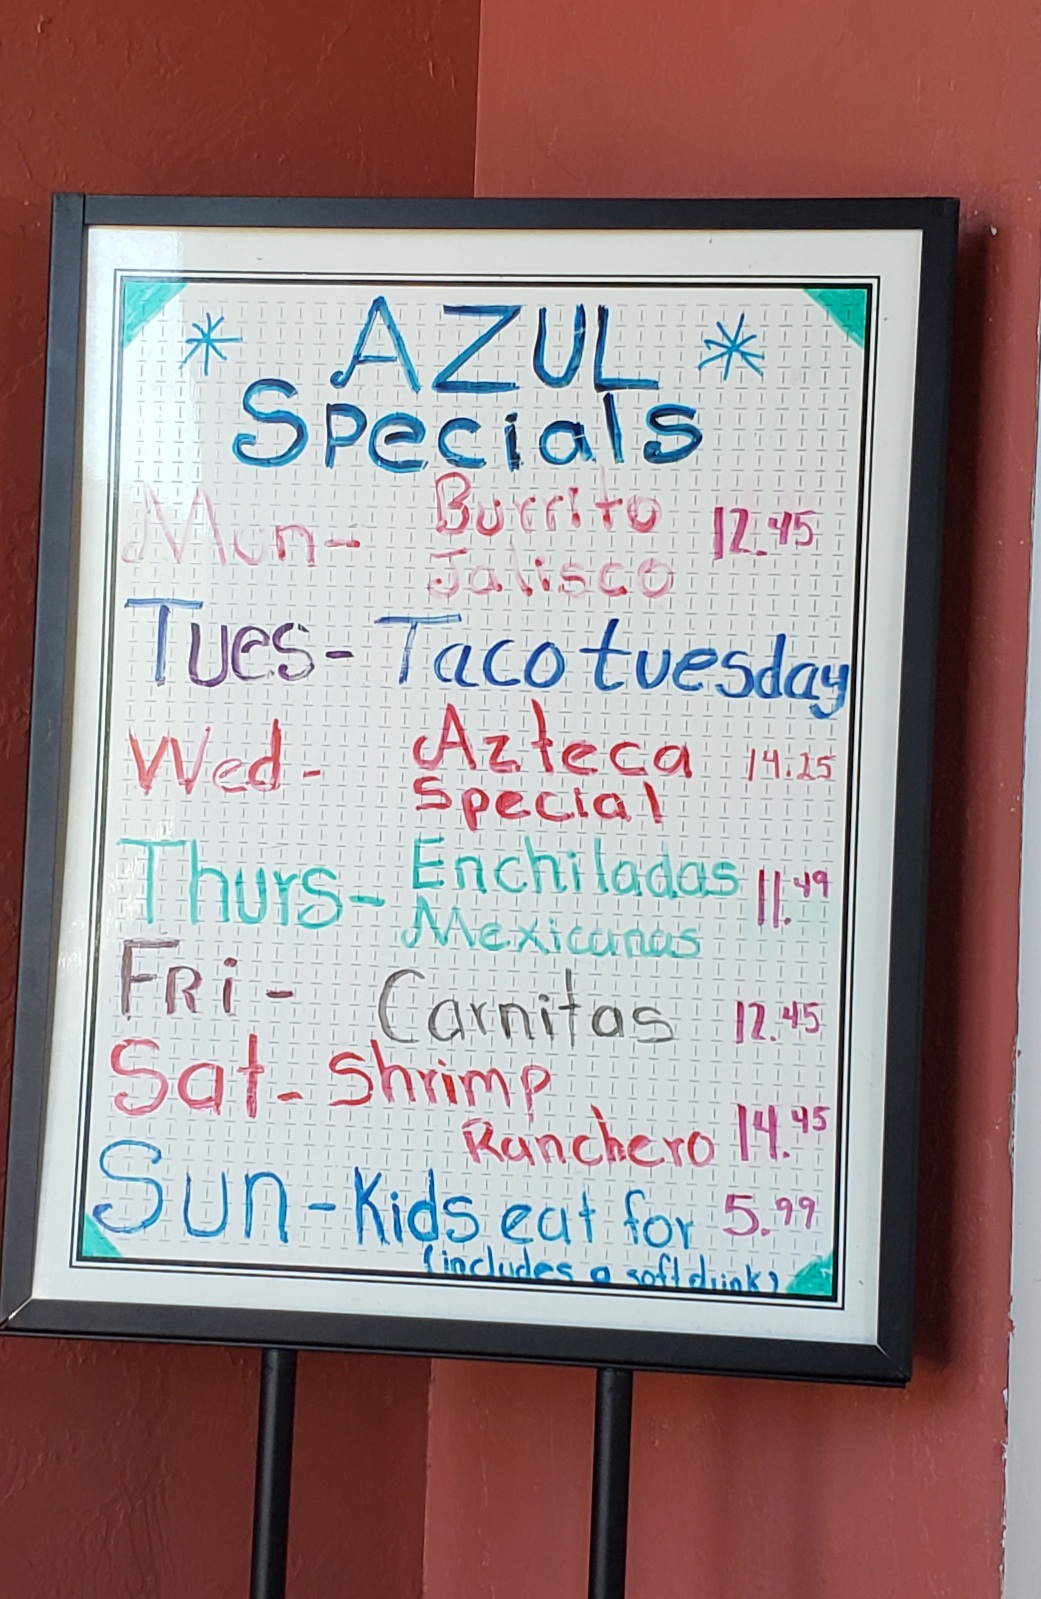 * AZUL *
Specials
Mon- Burrito 12.45
Jalisco
Tues- Taco tuesday
Wed- Azteca 14.25
Special
Thurs- Enchiladas 11.49
Mexicanas
FRi- Carnitas 12.45
Sat- Shrimp
Ranchero 14.45
Sun- Kids eat for 5.99
(includes a soft drink)